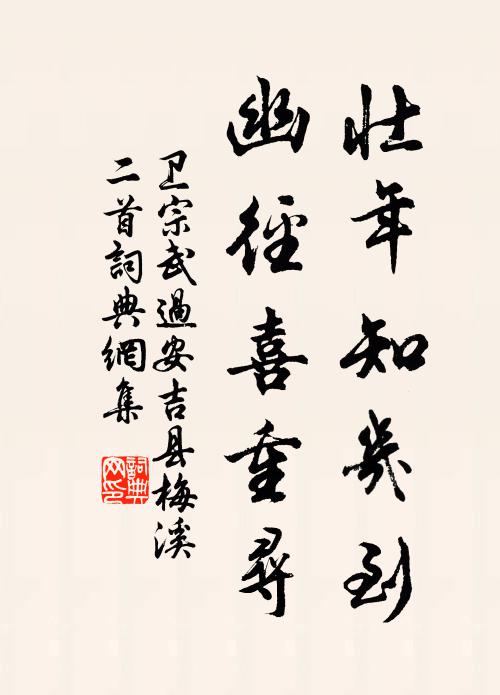 壮年知几到
幽径喜重尋
卫宗武過安吉县梅溪
二首詞典網集
詞典
网印